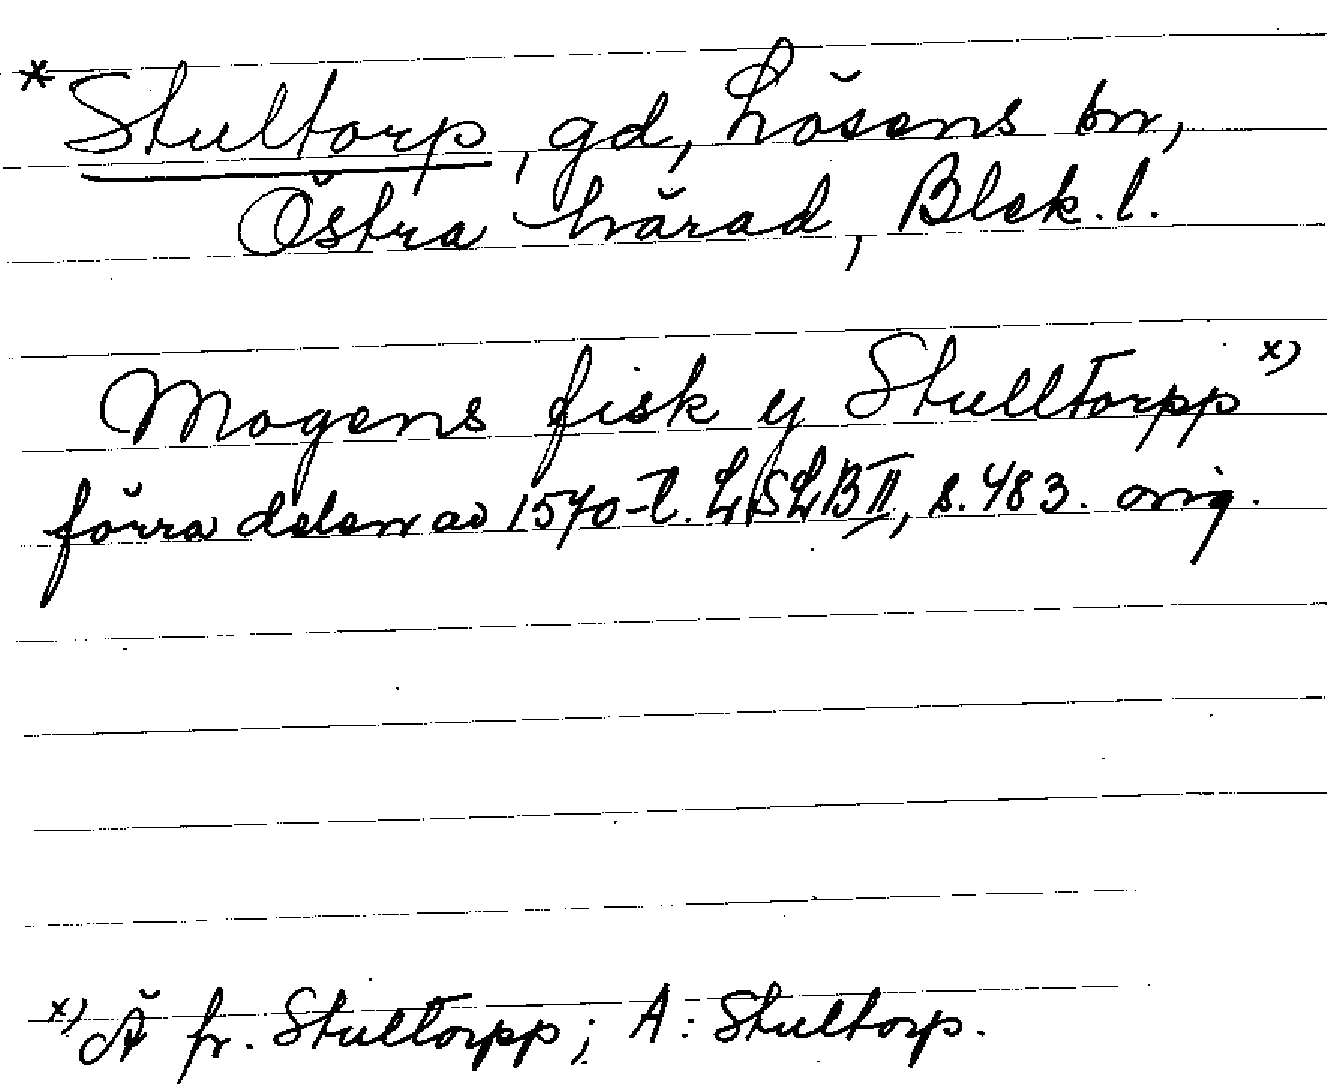 * Stultorp, gd, Lösens sn,
Östra härad, Blek. l.
Mogens fisk y Stulltorpp x)
förra delen av 1570-t. LSLB II, s. 483. orig.
x) Ä fr. Stultorpp; A: Stultorp.